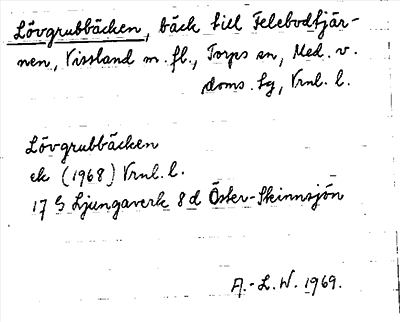 Lövgrubbäcken, bäck till Felebodtjär-
nen, Vissland m. fl., Torps sn, Med. v.
doms. tg, Vrnl. l.
Lövgrubbäcken
ek (1968) Vrnl. l.
17 G Ljungaverk 8 d Öster-Skinnsjön
A.-L. W. 1969.